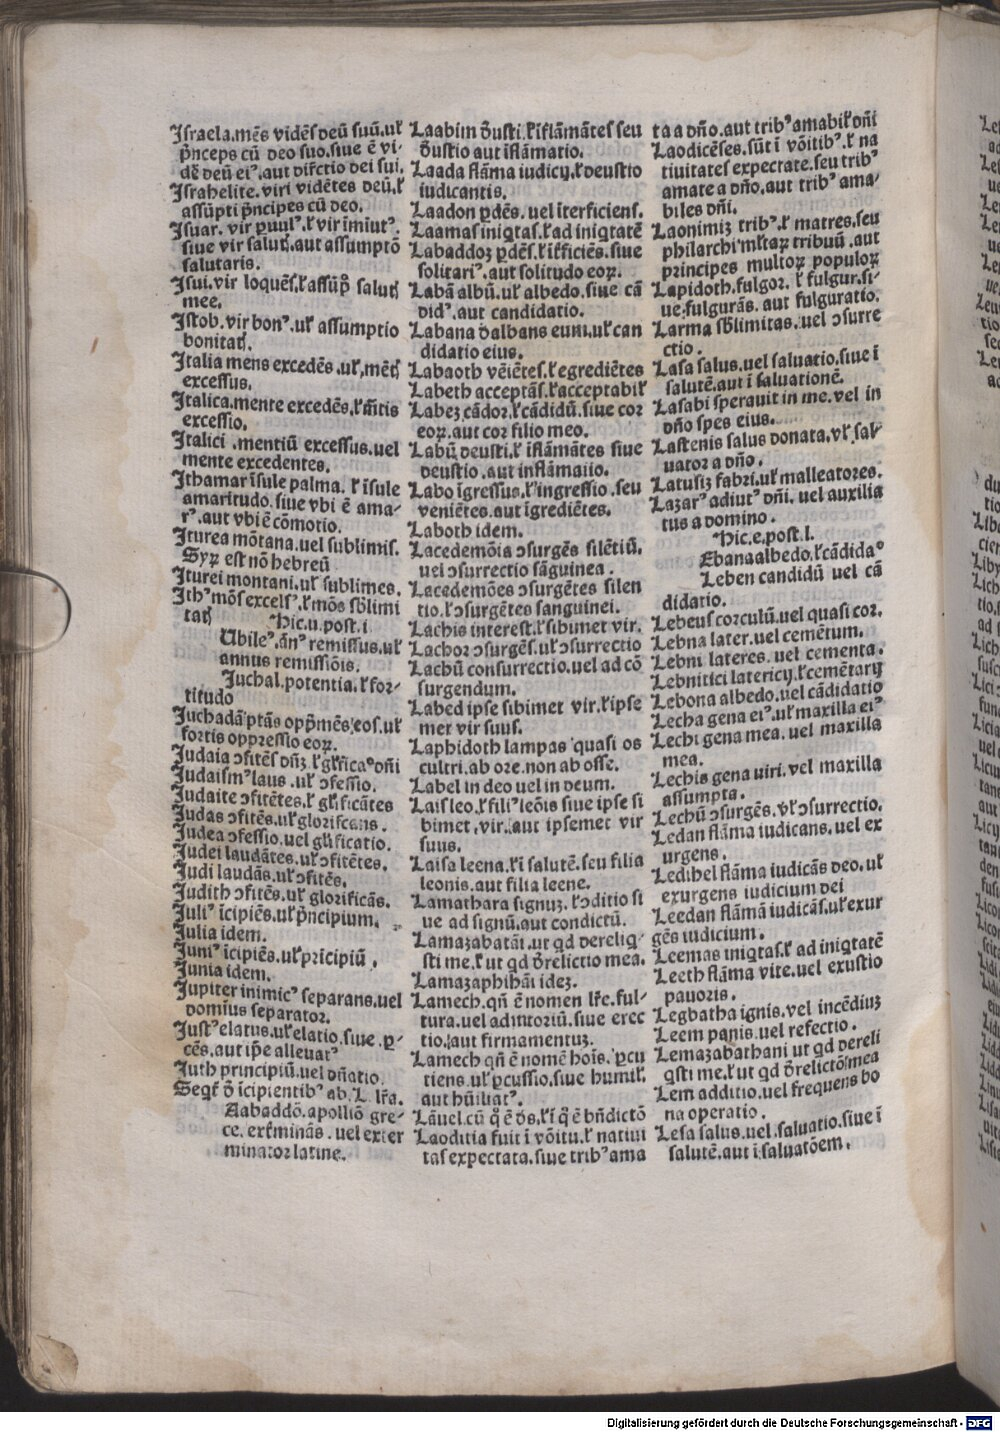 Israela.mẽs vidẽs deũ suũ.uł
p̃nceps cũ deo suo.siue ẽ vi-
dẽ deũ eiꝰ.aut dir̃ctio dei sui.
Israhelite.viri vidẽtes deũ.ł
assũpti p̃ncipes cũ deo.
Isuar. vir ꝑuulꝰ.ł vir ĩmiutꝰ.
siue vir saluť.aut assumptõ
salutaris.
Isui.vir loquẽs.ł assũp̃ saluť
mee.
Istob.vir bonꝰ.uł assumptio
bonitať.
Italia mens excedẽs.uł.mẽť
excessus.
Italica.mente excedẽs.ł m̃tis
excessio.
Italici .mentiũ excessus.uel
mente excedentes.
Ithamar ĩsule palma. ł ĩsule
amaritudo.siue vbi ẽ ama-
rꝰ.aut vbi ẽ cõmotio.
Iturea mõtana.uel sublimis.
Syꝝ est nõ hebreũ
Iturei montani.uł sublimes.
Ithꝰ mõs excelsꝰ.ł mõs sb̃limi
tať Hic.u.post.i
Ubileꝰ.ãnꝰ remissus.uł
annus remissiõis.
Iuchal.potentia.ł for-
titudo
Iuchadã ptãs opp̃mẽs eos.uł
fortis oppressio eoꝝ.
Iudaia ɔfitẽs dñʒ.ł gl̃ficaꝰ dñi
Iudaismꝰ laus .uł ɔfessio.
Iudaite ɔfitẽtes.ł gl̃ificãtes
Iudas ɔfitẽs.uł glorificans.
Iudea ɔfessio.uel gl̃ificatio.
Iudei laudãtes.uł ɔfitẽtes.
Iudi laudãs.uł ɔfitẽs.
Iudith ɔfitẽs.uł glorificãs.
Iuliꝰ ĩcipiẽs.uł p̃ncipium.
Iulia idem.
Iuniꝰ ĩcipiẽs.uł p̃ricipiũ .
Iunia idem.
Iupiter inimicꝰ separans.uel
domĩus separator.
Iustꝰ elatus.uł elatio.siue .ꝑ-
cẽs.aut ip̃e alleuatꝰ
Iuth principiũ.uel dñatio.
Seqť ð ĩcipientibꝰ ab.L. lr̃a.
Aabaddõ.apolliõ gre-
ce.ext̃minãs .uel exter
minator latine.
Laabim ðusti.ł ĩflãmãtes seu
ðustio aut ĩflãmatio.
Laada flãma iudicij.ł deustio
iudicantis.
Laadon ꝑdẽs.uel ĩterficiens.
Laamas iniqtas.ł ad iniqtatẽ
Labaddoʒ ꝑdẽs.ł ĩtficiẽs.siue
solitariꝰ.aut solitudo eoꝝ.
Labã albũ.uł albedo.siue cã
didꝰ.aut candidatio.
Labana ðalbans eum.uł can
didatio eius.
Labaoth vẽiẽtes.ł egrediẽtes
Labeth acceptãs.ł acceptabił
Labeʒ cãdor.ł cãdidũ.siue cor
eoꝝ.aut cor filio meo.
Labũ deusti.ł ĩflãmãtes siue
deustio .aut inflãmatio.
Labo ĩgressus.ł ingressio .seu
veniẽtes.aut ĩgrediẽtes.
Laboth idem.
Lacedemõia ɔsurgẽs silẽtiũ.
uel ɔsurrectio sãguinea .
Lacedemões ɔsurgẽtes silen
tio.ł ɔsurgẽtes sanguinei.
Lachis interest.ł sibimet vir.
Lachor ɔsurgẽs.uł ɔsurrectio
Lachũ consurrectio.uel ad cõ
surgendum.
Labed ipse sibimet vir.ł ipse
met vir suus.
Laphidoth lampas quasi os
cultri.ab ore.non ab osse.
Label in deo uel in deum.
Lais leo.ł filiꝰ leõis siue ipse si
bimet.vir.aut ipsemet vir
suus.
Laisa leena.ł ĩ salutẽ.seu filia
leonis.aut filia leene.
Lamathara signuʒ.ł ɔditio si
ue ad signũ.aut condictũ.
Lamaʒabatãi.ut qd dereliq-
sti me.ł ut qd ðrelictio mea.
Lamaʒaphthãi ideʒ.
Lamech.qñ ẽ nomen lr̃e.ful-
tura.uel adiutoriũ.siue erec
tio.aut firmamentuʒ.
Lamech qñ ẽ nomẽ hoĩs.ꝑcu
tiens.uł ꝑcussio.siue humił.
aut hũiliatꝰ.
Lãuel.cũ q̃ ẽ ðs.ł ĩ q̃ ẽ bñdictõ
Laoditia fuit ĩ võitu.ł natiui
tas expectata.siue tribꝰ ama
ta a dño.aut tribꝰ amabił dñi
Laodicẽses.sũt ĩ võitibꝰ.ł na
tiuitates expectate.seu tribꝰ
amate a dño.aut tribꝰ ama-
biles dñi.
Laonimiʒ tribꝰ.ł matres.seu
philarchi mltaꝝ tribuũ .aut
principes multoꝝ populoꝝ
Lapidoth.fulgor. ł fulgur.si-
ue.fulgurãs. aut fulguratio.
Larma sb̃limitas.uel ɔsurre
ctio .
Lasa salus.uel saluatio.siue ĩ
salutẽ.aut ĩ saluationẽ.
Lasabi sperauit in me.vel in
dño spes eius.
Lastenis salus donata.vł sal-
uator a dño.
Latusiʒ fabri.uł malleatores.
Lazarꝰ adiutꝰ dñi. uel auxilia
tus a domino .
Hic.e.post.l.
Ebana albedo.ł cãdidaꝰ
Leben candidũ uel cã
didatio.
Lebeus corculũ.uel quasi cor.
Lebna later.uel cemẽtum.
Lebni lateres. uel cementa.
Lebnitici latericij.ł cemẽtarij
Lebona albedo.uel cãdidatio
Lecha gena eiꝰ.uł maxilla eiꝰ
Lechi gena mea. uel maxilla
mea.
Lechis gena uiri.vel maxilla
assumpta.
Lechũ ɔsurgẽs.vł ɔsurrectio.
Ledan flãma iudicans.uel ex
urgens.
Ledibel flãma iudicãs deo.uł
exurgens iudicium dei
Leedan flãmã iudicãs.uł exur
gẽs iudicium.
Leemas iniqtas.ł ad iniqtatẽ
Leeth flãma vite.uel exustio
pauoris.
Legbatha ignis.vel incẽdiuʒ
Leem panis.uel refectio.
Lemaʒabathani ut qd dereli
qsti me.ł ut qd ðrelictõ mea
Lem additio.uel frequens bo
na operatio .
Lesa salus.uel.saluatio.siue ĩ
salutẽ.aut ĩ saluatõem.
Digitalisierung gefördert durch die Deutsche Forschungsgemeinschaft - DFG